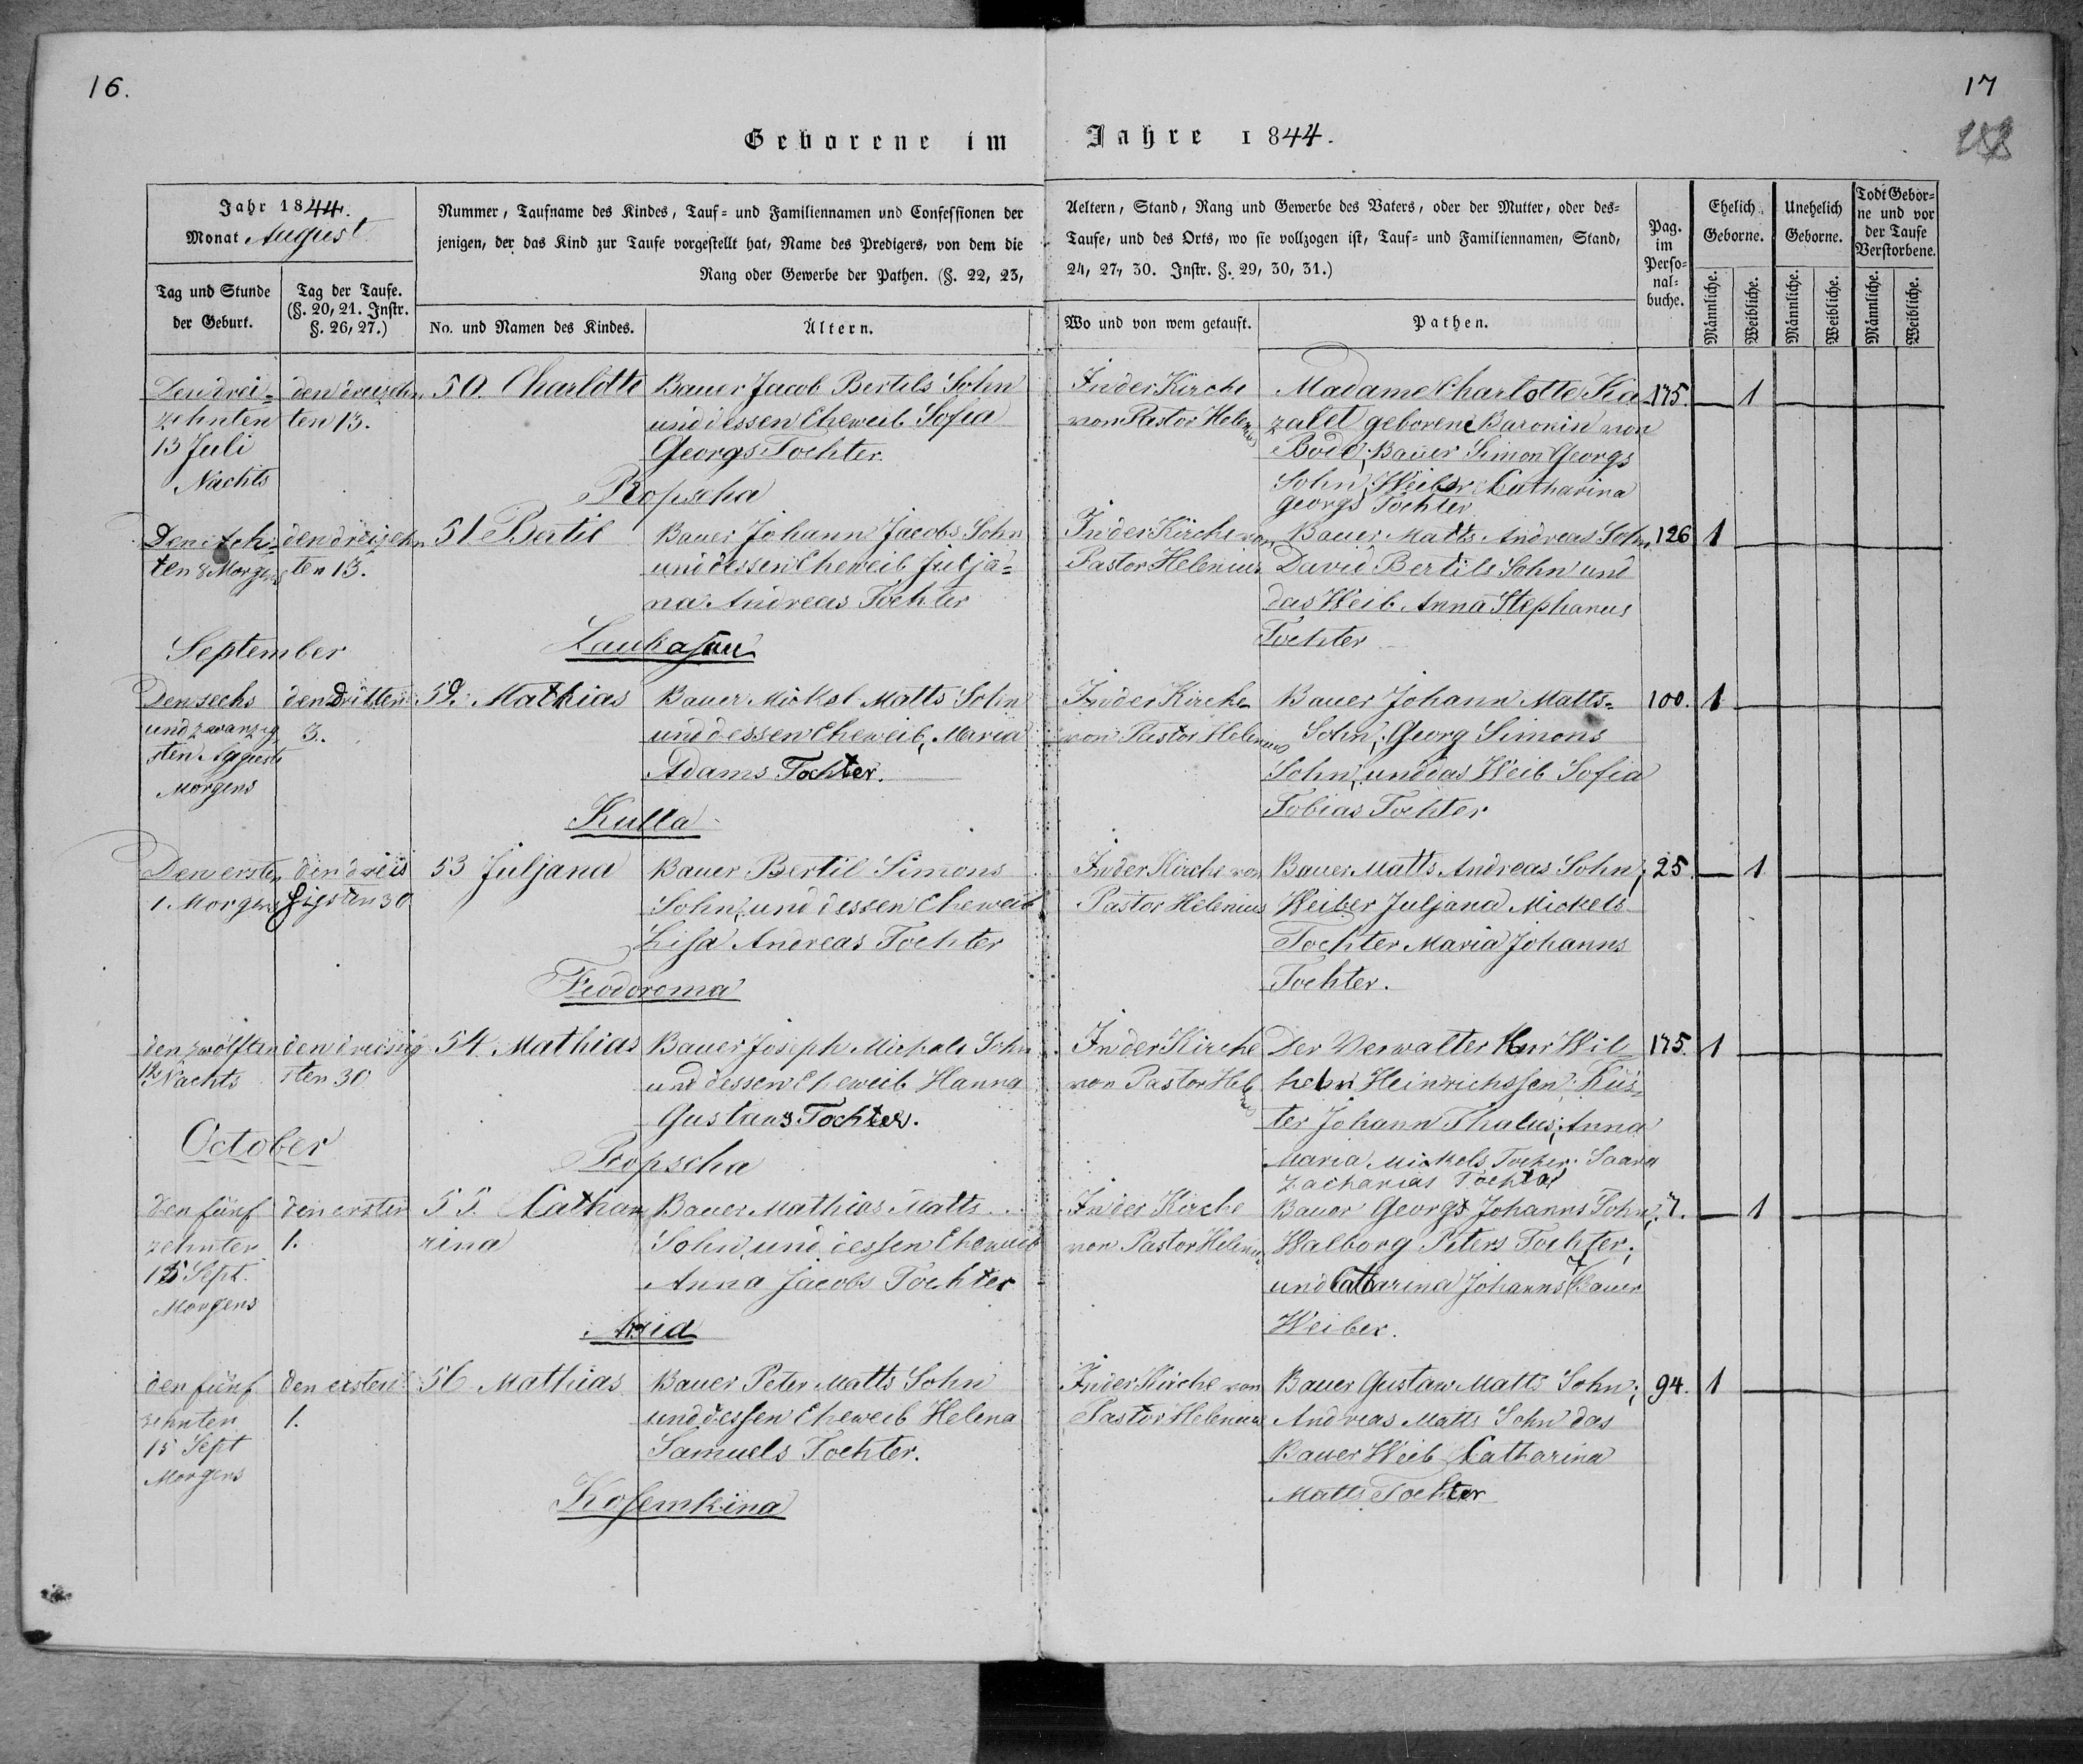 16.
17
Geborene im Jahre 1844.
Jahr 1844.
Monat August
Nummer, Taufname des Kindes, Tauf- und Familiennamen und Confessionen der
jenigen, der das Kind zur Taufe vorgestellt hat, Name des Predigers, von dem die
Rang oder Gewerbe der Pathen. (§. 22, 23,
Aeltern, Stand, Rang und Gewerbe des Vaters, oder der Mutter, oder des-
Taufe, und des Orts, wo sie vollzogen ist, Tauf- und Familiennamen, Stand,
24, 27, 30. Instr. §. 29, 30, 31.)
Pag.
im
Perso-
nal-
buche.
Ehelich
Geborne.
Unehelich
Geborne.
Todt Gebor-
ne und vor
der Taufe
Verstorbene.
Tag und Stunde
der Geburt.
Tag der Taufe.
(§. 20, 21. Instr.
§. 26, 27.)
No. und Namen des Kindes.
Ältern.
Wo und von wem getauft.
Pathen.
Männliche.
Weibliche.
Männliche.
Weibliche.
Männliche.
Weibliche.
Den drei-
zehnten
13 Juli
Nachts
den dreizehn
ten 13.
50. Charlotte
Bauer Jacob Bertils Sohn
und dessen Eheweib Sofia
Georgs Tochter.
Ropscha
In der Kirche
von Pastor Helenius
Madame Charlotte
zalet geborene Baronin von
Bode, Bauer Simon Georgs
Sohn, Weiber Catharina
Georgs Tochter
175.
1
Den ach-
ten 8 Morgens
den dreizehn
ten 13.
51. Bertil
Bauer Johann Jacobs Sohn
und dessen Eheweib Julja-
na Andreas Tochter
Laukasuu
In der Kirche von
Pastor Helenius
Bauer Matts Andreas Sohn,
David Bertils Sohn und
das Weib Anna Stephanus
Tochter
126
1
September
Den sechs
und zwanzig
sten Augusti
Morgens
den dritten
3.
52. Mathias
Bauer Mickel Matts Sohn
und dessen Eheweib, Maria
Adams Tochter.
Kulla
In der Kirche
von Pastor Helenius
Bauer Johann Matts-
Sohn, Georg Simons
Sohn, und das Weib Sofia
Tobias Tochter
100.
1
Den ersten
1. Morgens
den dreis
sigsten 30
53 Juljana
Bauer Bertil Simons
Sohn, und dessen Eheweib
Lisa Andreas Tochter
Feodoroma
In der Kirche von
Pastor Helenius
Bauer Matts Andreas Sohn;
Weiber Juljana Mickels
Tochter Maria Johanns
Tochter.
25
1
den zwölften
12. Nachts
den dreisig
sten 30
54. Mathias
Bauer Joseph Mickels Sohn
und dessen Eheweib Hanna
Gustavs Tochter.
Ropscha
In der Kirche
von Pastor Helenius
Der Verwalter Herr Wil-
helm Heinrichssen; Küs-
ter Johann Thalus; Anna
Maria Mickels Tocher. Saara
Zacharias Tochter
175.
1
October
den fünf
zehnten
15 Sept.
Morgens
den ersten
1.
55. Catha
rina
Bauer Mathias Matts
Sohn, und dessen Eheweib
Anna Jacobs Tochter
In der Kirche
von Pastor Helenius
Bauer Georgs Johanns Sohn,
Walborg Peters Tochter;
und Catharina Johanns Bauer
Weiber.
7.
1
den fünf
zehnten
15 Sept
Morgens
den ersten
1.
56 Mathias
Bauer Peter Matts Sohn
und dessen Eheweib Helena
Samuels Tochter.
Kosemkina
In der Kirche von
Pastor Helenius
Bauer Gustaw Matts Sohn;
Andreas Matts Sohn das
Bauer Weib Catharina
Matts Tochter
94.
1